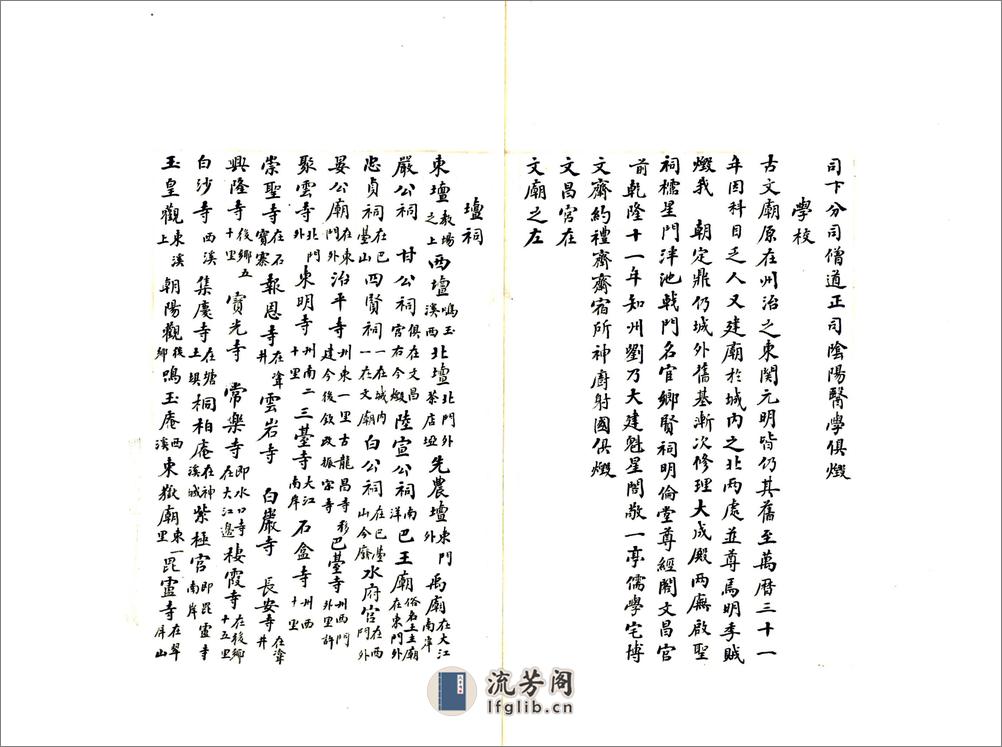 司下分司僧道正司陰陽醫學俱燬
學校
古文廟原在州治之東関元明皆仍其舊至萬曆三十一
年因科目乏人又建廟於城內之北兩處並尊焉明季賊
燬我　朝定鼎仍城外舊基漸次修理大成殿兩廡啟聖
祠欞星門泮池戟門名宦鄉賢祠明倫堂尊經閣文昌宮
前乾隆十一年知州劉乃大建魁星閣敬一亭儒學宅博
文齋約禮齋齋宿所神廚射圃俱燬
文昌宮在
文廟之左
壇祠
東壇教場之上 西壇鳴玉溪西 北壇北門外茶店埡 先農壇東門外 禹廟在大江南岸
嚴公祠 甘公祠俱在文昌宮右今燬 陸宣公祠南洋 巴王廟俗名土主廟在東門外
忠貞祠在巴臺山 四賢祠一在城內一在文廟 白公祠在巴臺山今廢 水府宮在西門外
晏公廟在東門外 治平寺州東一里古龍昌寺形建今後敘改振宗寺 巴臺寺州西門外里許
聚雲寺北門外 東明寺州南二十里 三臺寺大江南岸 石盒寺州西十里
崇聖寺在石寶寨 報恩寺在㳡井 雲岩寺 白巖寺 長安寺在㳡井
興隆寺後鄉五十里 寶光寺 常樂寺即水口寺在大江邊 棲霞寺在後鄉十五里
白沙寺西溪 集慶寺在塘土壩 桐柏庵在神溪城 紫極宮即毘靈寺南岸
玉皇觀東溪上 朝陽觀後鄉 鳴玉庵西溪 東嶽廟東一里 毘靈寺在翠屏山
流芳阁
lfglib.cn